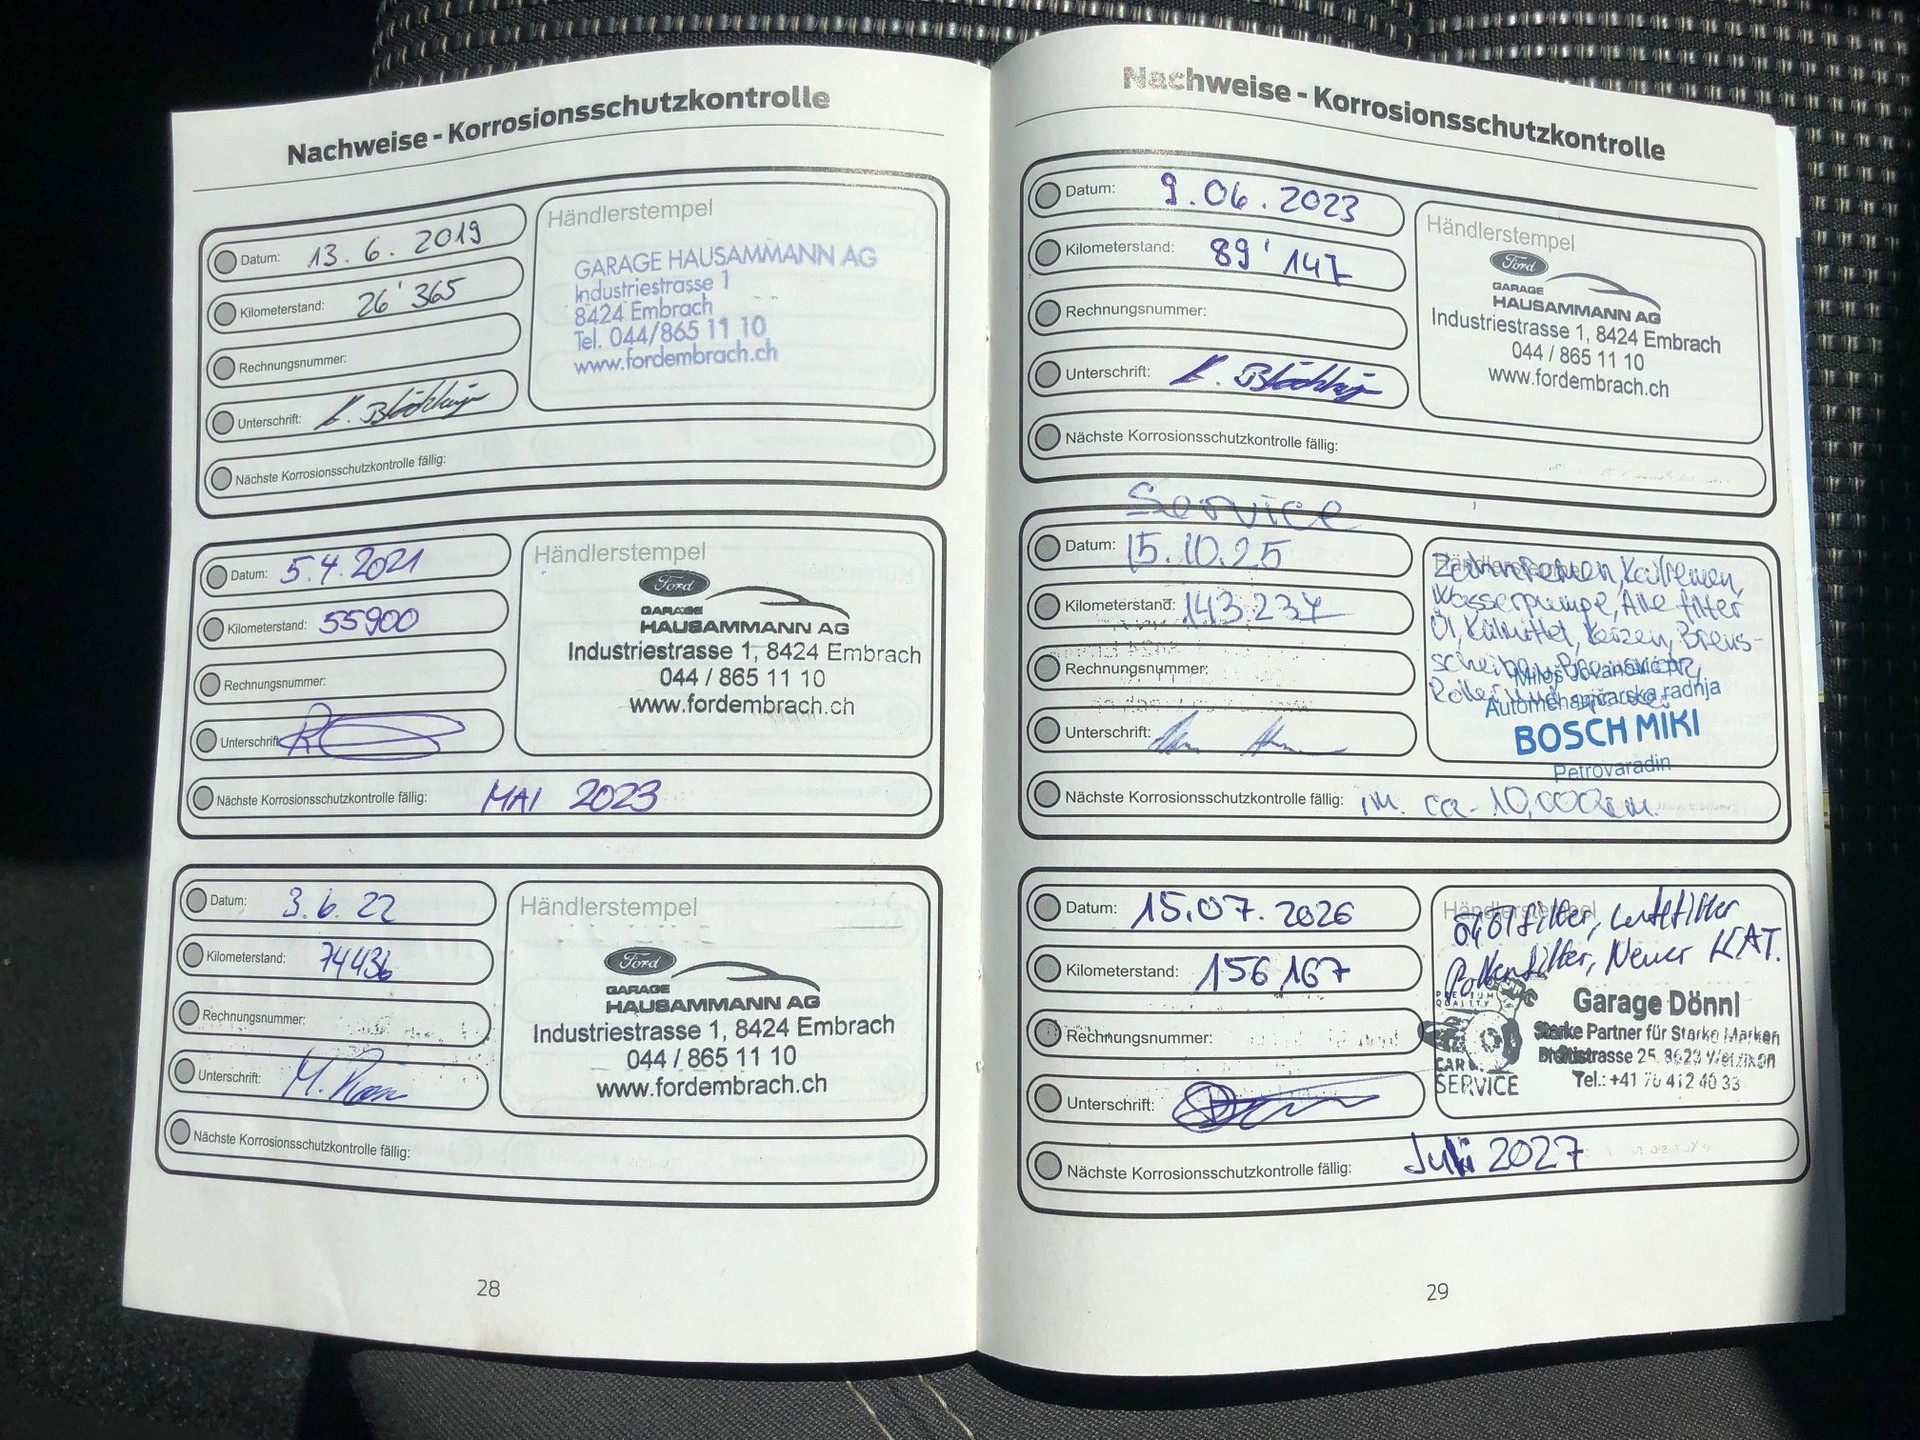 Nachweise - Korrosionsschutzkontrolle
Datum: 13. 6. 2019
Kilometerstand: 26'365
Rechnungsnummer:
Unterschrift:
Nächste Korrosionsschutzkontrolle fällig:
Händlerstempel
GARAGE HAUSAMMANN AG
Industriestrasse 1
8424 Embrach
Tel. 044/865 11 10
www.fordembrach.ch
Datum: 5.4.2021
Kilometerstand: 55900
Rechnungsnummer:
Unterschrift:
Nächste Korrosionsschutzkontrolle fällig: MAI 2023
Händlerstempel
Ford
GARAGE
HAUSAMMANN AG
Industriestrasse 1, 8424 Embrach
044 / 865 11 10
www.fordembrach.ch
Datum: 3.6.22
Kilometerstand: 74436
Rechnungsnummer:
Unterschrift:
Nächste Korrosionsschutzkontrolle fällig:
Händlerstempel
Ford
GARAGE
HAUSAMMANN AG
Industriestrasse 1, 8424 Embrach
044 / 865 11 10
www.fordembrach.ch
28
Nachweise - Korrosionsschutzkontrolle
Datum: 9.06.2023
Kilometerstand: 89'147
Rechnungsnummer:
Unterschrift:
Nächste Korrosionsschutzkontrolle fällig:
Händlerstempel
Ford
GARAGE
HAUSAMMANN AG
Industriestrasse 1, 8424 Embrach
044 / 865 11 10
www.fordembrach.ch
Service
Datum: 15.10.25
Kilometerstand: 143.237
Rechnungsnummer:
Unterschrift:
Nächste Korrosionsschutzkontrolle fällig: in ca. 10,000km.
Händlerstempel
Zahnriemen, Keilriemen,
Wasserpumpe, Alle filter
Öl, Külmittel, Kerzen, Brems-
Automehaničarska radnja
BOSCH MIKI
Petrovaradin
Datum: 15.07.2026
Kilometerstand: 156,167
Rechnungsnummer:
Unterschrift:
Nächste Korrosionsschutzkontrolle fällig: Juli 2027
Händlerstempel
Ölfilter, Luftfilter
Pollenfilter, Neuer KAT.
PREMIUM
QUALITY
CAR
SERVICE
Garage Dönni
Starke Partner für Starke Marken
25, 8623 Wetzikon
Tel.: +41 76 412 40 33
29